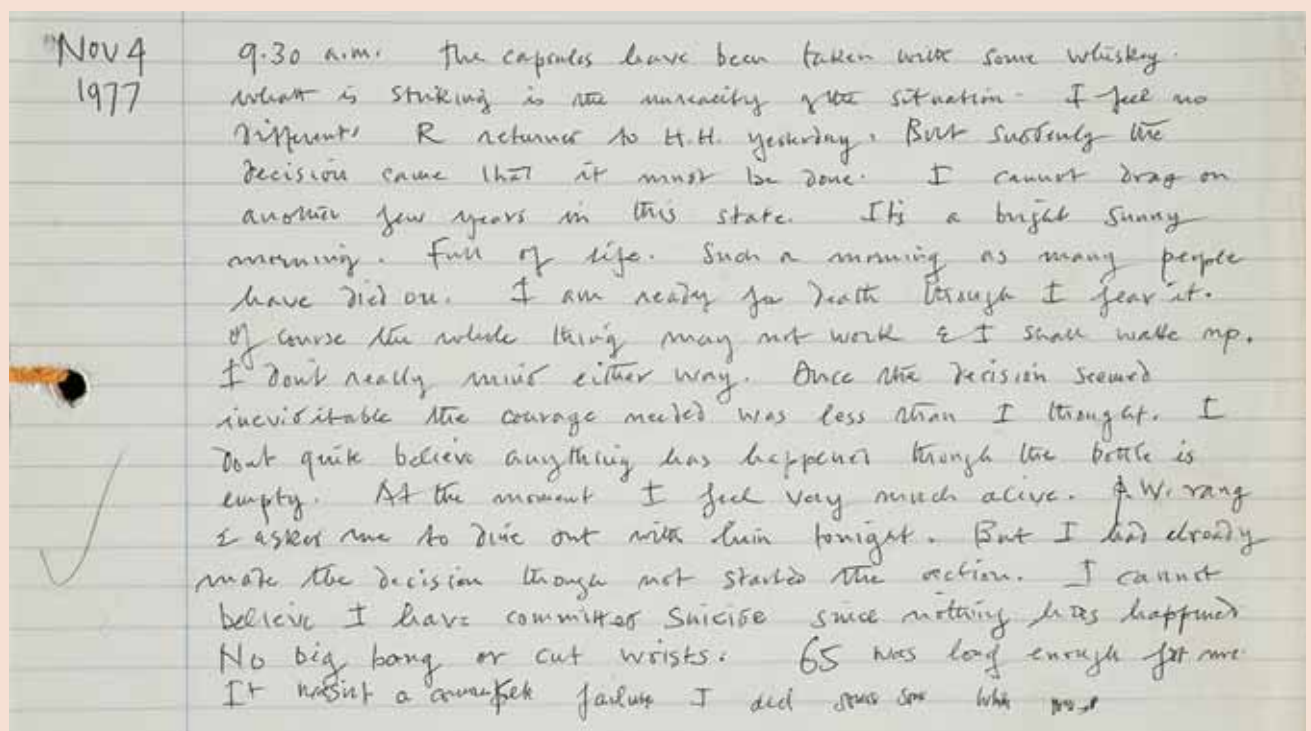 Nov 4
1977
9.30 a.m. The capsules have been taken with some whiskey.
What is striking is the unreality of the situation. I feel no
different. R returned to H.H. yesterday. But suddenly the
decision came that it must be done. I cannot drag on
another few years in this state. It's a bright sunny
morning. Full of life. Such a morning as many people
have died on. I am ready for death though I fear it.
Of course the whole thing may not work & I shall wake up.
I don't really mind either way. Once the decision seemed
inevitable the courage needed was less than I thought. I
don't quite believe anything has happened though the bottle is
empty. At the moment I feel very much alive. W. rang
& asked me to dine out with him tonight. But I had already
made the decision though not started the action. I cannot
believe I have committed suicide since nothing has happened
No big bang or cut wrists. 65 was long enough for me.
It wasn't a complete failure I did some